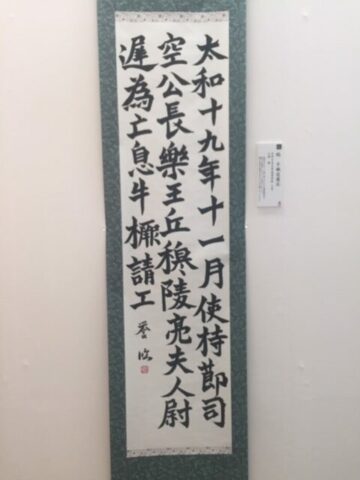 太和十九年十一月使持節司
空公長樂王丘穆陵亮夫人尉
遲為亡息牛橛請工